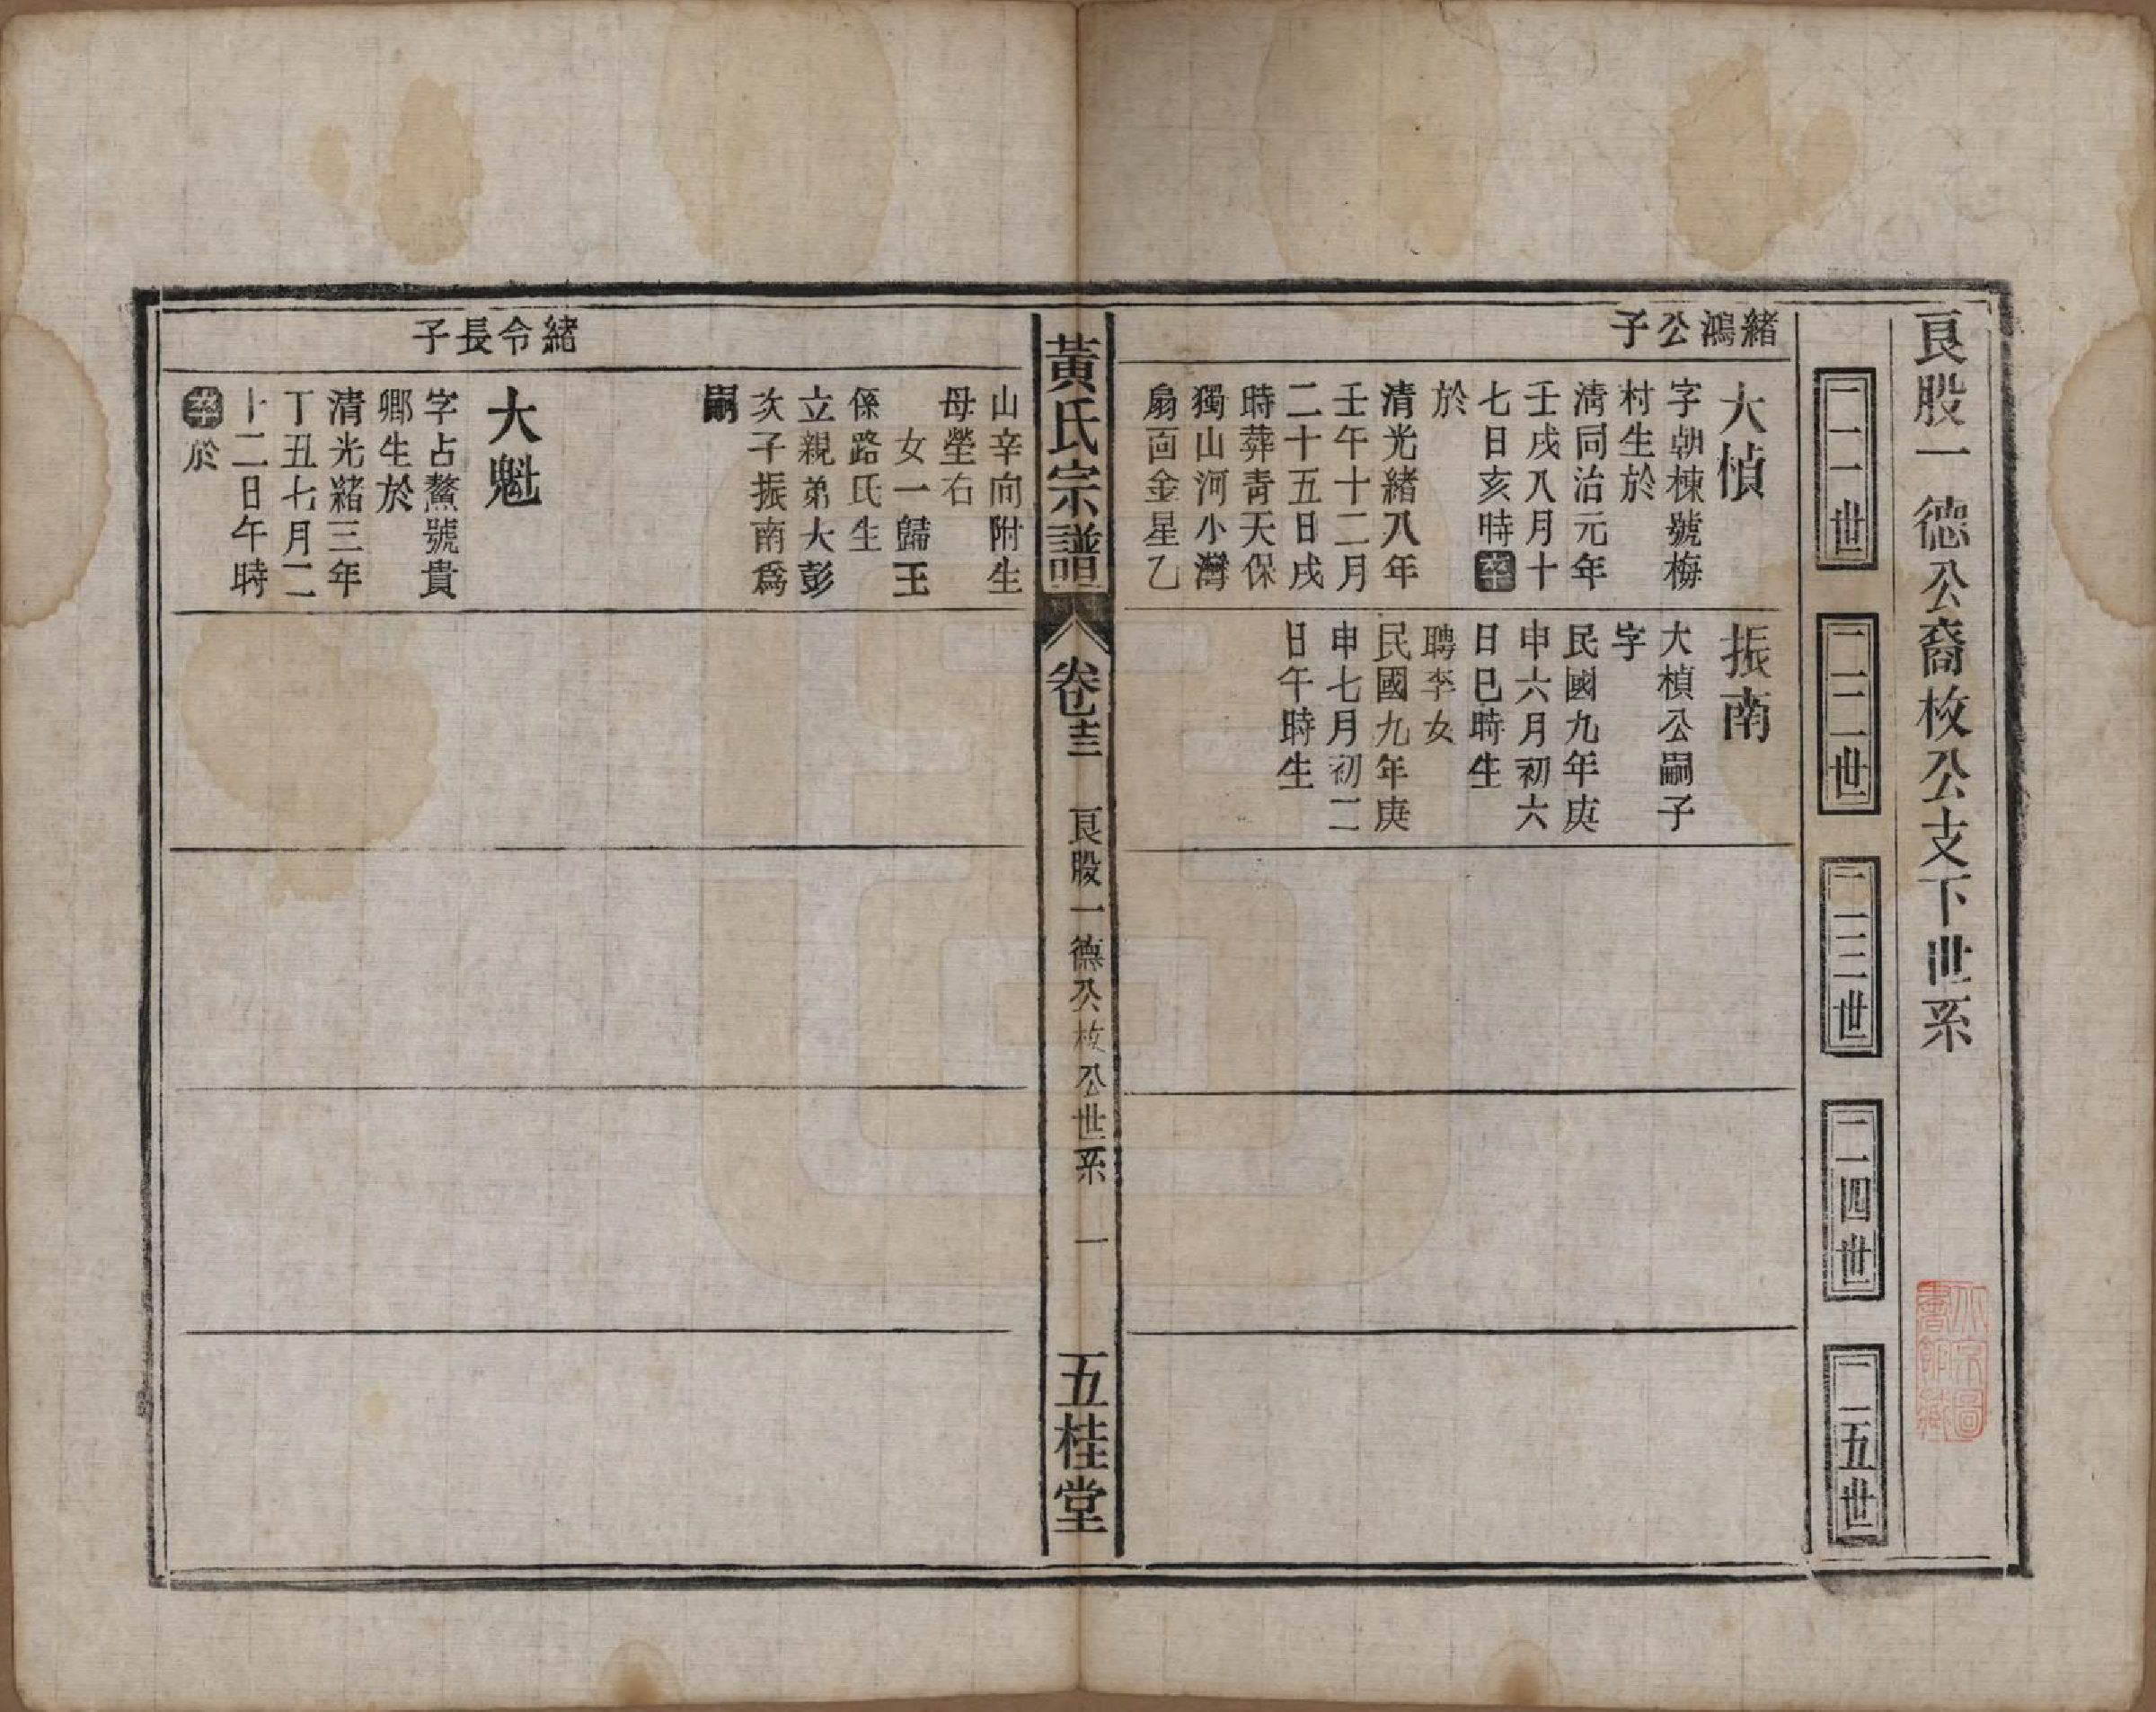 良股一德公裔枚公支下世系
二一世
二二世
二三世
二四世
二五世
緒鴻公子
大楨
字朝棟號梅
村生於
淸同治元年
壬戌八月十
七日亥時卒
於
清光緒八年
壬午十二月
二十五日戌
時葬青天保
獨山河小灣
扇面金星乙
振南
大楨公嗣子
字
民國九年庚
申六月初六
日巳時生
聘李女
民國九年庚
申七月初二
日午時生
黃氏宗譜
卷十三
良股一德公枚公世系
一
五桂堂
山辛向附生
母塋右
女一歸王
係路氏生
立親弟大彭
次子振南爲
嗣
緒令長子
大魁
字占鰲號貴
鄉生於
清光緒三年
丁丑七月二
十二日午時
卒於